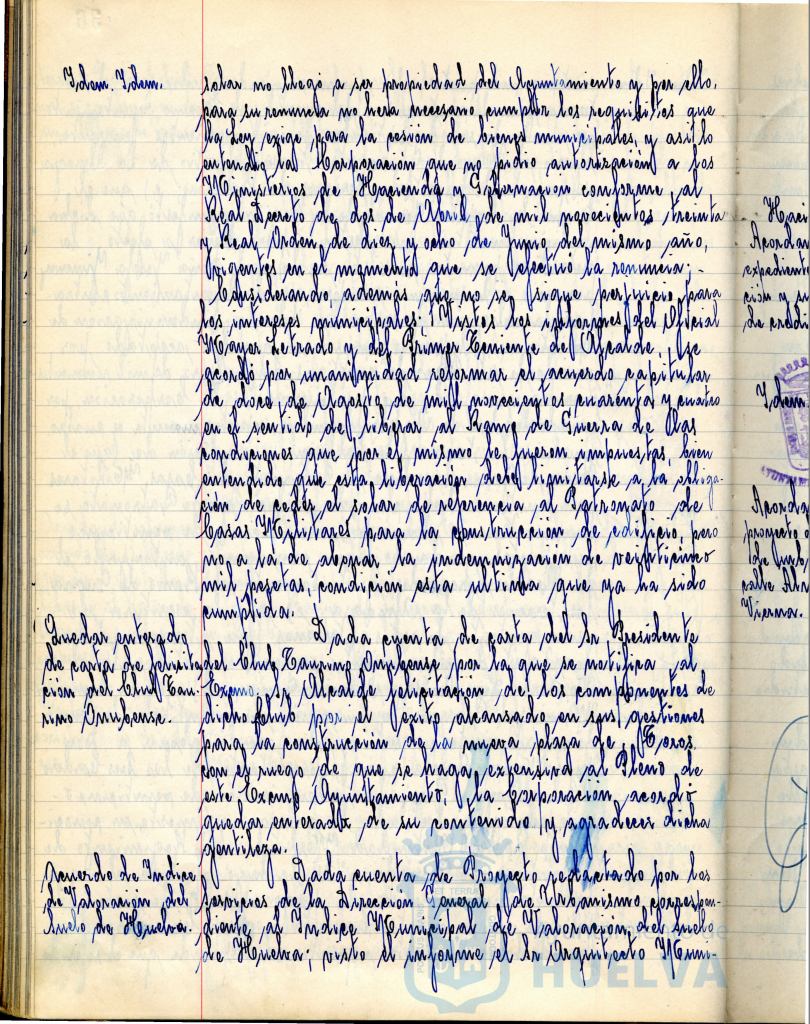 Idem. Idem.
solar no llegó a ser propiedad del Ayuntamiento y por ello,
para su renuncia no hera necesario cumplir los requisitos que
la Ley exige para la cesión de bienes municipales, y asi lo
entendió la Corporación que no pidió autorización a los
Ministerios de Hacienda y Gobernación conforme al
Real Decreto de dos de Abril de mil novecientos treinta
y Real Orden de diez y ocho de Junio del mismo año,
vigentes en el momento que se efectuó la renuncia;-
Considerando, además que no se sigue perjuicio para
los intereses municipales; Vistos los informes del Oficial
Mayor Letrado y del Primer Teniente de Alcalde, se
acordó por unanimidad reformar el acuerdo capitular
de doce de Agosto de mil novecientos cuarenta y cuatro
en el sentido de liberar al Ramo de Guerra de las
condiciones que por el mismo le fueron impuestas, bien
entendido que esta liberación debe limitarse a la obliga-
ción de ceder el solar de referencia al Patronato de
Casas Militares para la construcción de edificio, pero
no a la de abonar la indemnización de veinticinco
mil pesetas, condición esta ultima que ya ha sido
cumplida.
Quedar enterado
de carta de felicita
ción del Club Tau-
rino Onubense.
Dada cuenta de carta del Sr. Presidente
del Club Taurino Onubense por la que se notifica al
Excmo. Sr. Alcalde felicitación de los componentes de
dicho Club por el éxito alcansado en sus gestiones
para la construcción de la nueva plaza de Toros
con el ruego de que se haga extensiva al Pleno de
este Excmo Ayuntamiento, la Corporación acordó
quedar enterada de su contenido y agradecer dicha
gentileza.
Acuerdo de Indice
de Valoración del
Suelo de Huelva.
Dada cuenta de Proyecto redactado por los
servicios de la Dirección General de Urbanismo, correspon-
diente al Indice Municipal de Valoración del Suelo
de Huelva; visto el informe el Sr Arquitecto Muni-
HUELVA
Acordar
expediente
ción y su
de credi
Idem
Acorda
proyecto
Vierna.